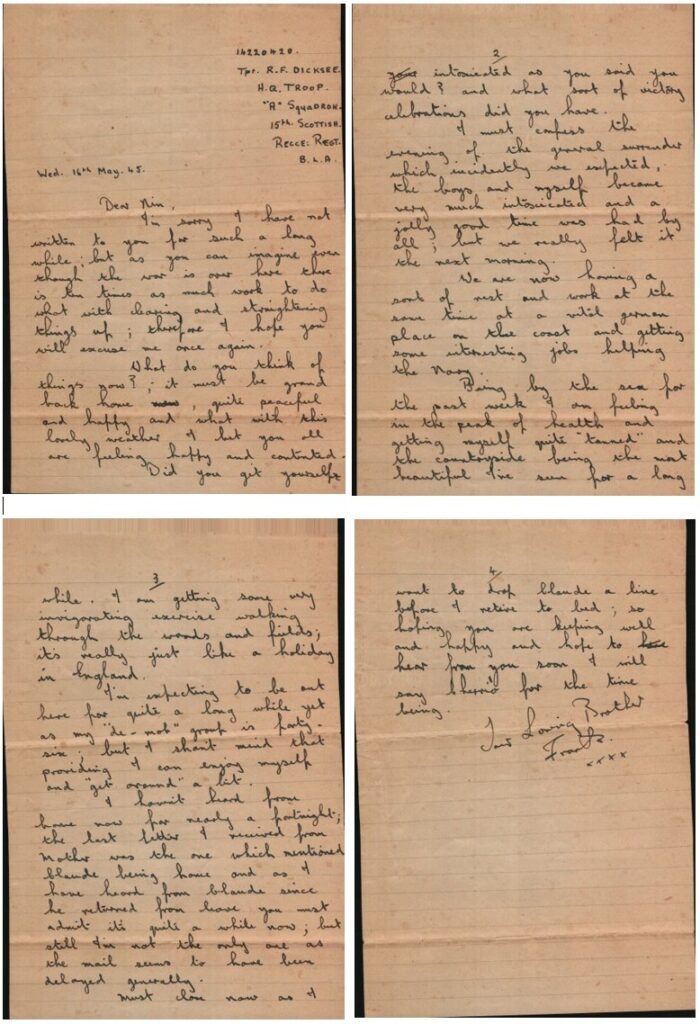 14220420.
Tpr. R.F. DICKSEE.
H.Q. TROOP.
"A" SQUADRON.
15TH. SCOTTISH.
RECCE: REGT.
B.L.A.
Wed. 16TH May. 45.
Dear Nin,
I'm sorry I have not
written to you for such a long
while; but as you can imagine even
though the war is over here there
is ten times as much work to do
what with clearing and straightening
things up; therefore I hope you
will excuse me once again.
What do you think of
things now?; it must be grand
back home now, quite peaceful
and happy and what with this
lovely weather I bet you all
are feeling happy and contented.
Did you get yourself
2
your intoxicated as you said you
would? and what sort of victory
celebrations did you have.
I must confess the
evening of the general surrender
which incidently we expected,
the boys and myself became
very much intoxicated and a
jolly good time was had by
all; but we really felt it
the next morning.
We are now having a
sort of rest and work at the
same time at a vital german
place on the coast and getting
some interesting jobs helping
the Navy.
Being by the sea for
the past week I am feeling
in the peak of health and
getting myself quite "tanned" and
the countryside being the most
beautiful I've seen for a long
3
while. I am getting some very
invigorating exercise walking
through the woods and fields;
it's really just like a holiday
in England.
I'm expecting to be out
here for quite a long while yet
as my "de-mob" group is forty-
six; but I shan't mind that
providing I can enjoy myself
and "get around" a bit.
I havn't heard from
home now for nearly a fortnight;
the last letter I received from
Mother was the one which mentioned
Claude being home and as I
have heard from Claude since
he returned from leave you must
admit it's quite a while now; but
still I'm not the only one as
the mail seems to have been
delayed generally.
Must close now as I
4
want to drop Claude a line
before I retire to bed; so
hoping you are keeping well
and happy and hope to
hear from you soon I will
say cherrio for the time
being.
Your Loving Brother
Frank.
xxxx